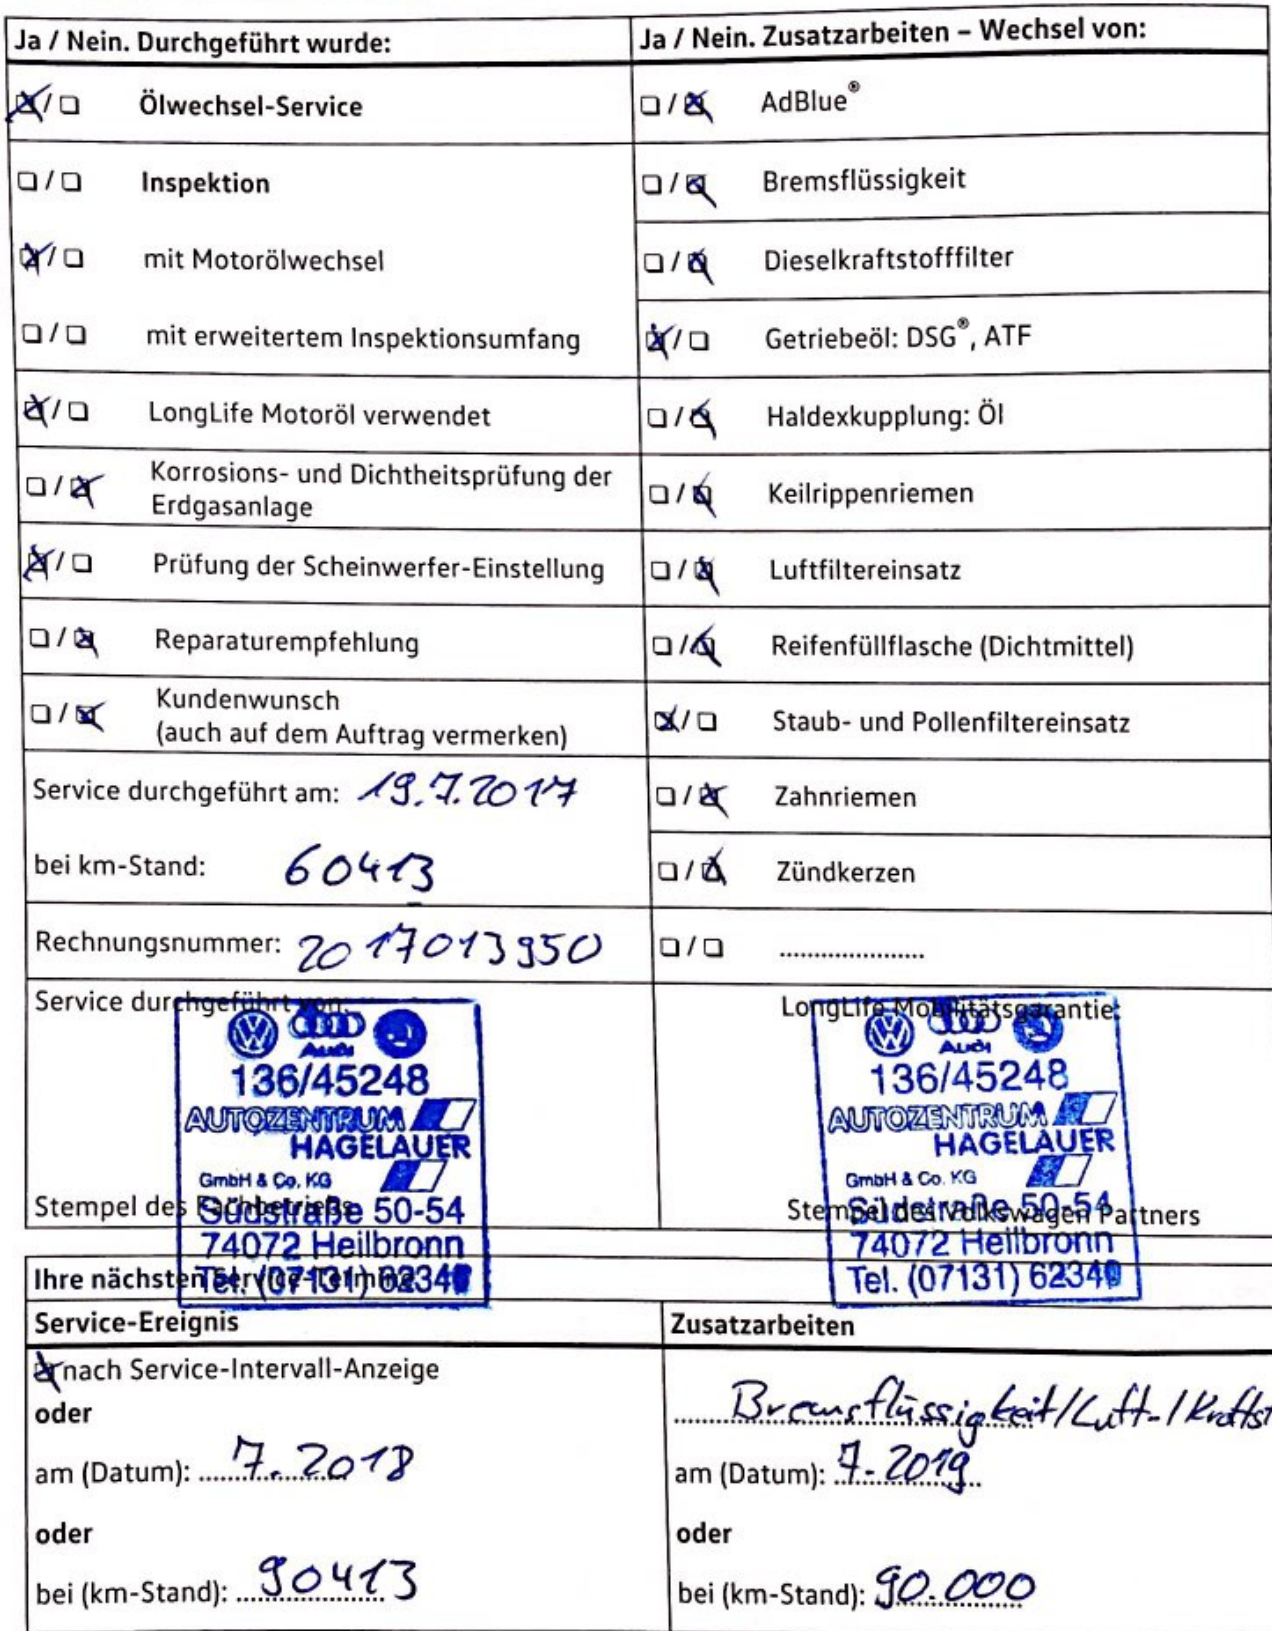 Ja / Nein. Durchgeführt wurde:
Ja / Nein. Zusatzarbeiten – Wechsel von:
☒ / ☐ Ölwechsel-Service
☐ / ☒ AdBlue®
☐ / ☐ Inspektion
☐ / ☒ Bremsflüssigkeit
☒ / ☐ mit Motorölwechsel
☐ / ☒ Dieselkraftstofffilter
☐ / ☐ mit erweitertem Inspektionsumfang
☒ / ☐ Getriebeöl: DSG®, ATF
☒ / ☐ LongLife Motoröl verwendet
☐ / ☒ Haldexkupplung: Öl
☐ / ☒ Korrosions- und Dichtheitsprüfung der
Erdgasanlage
☐ / ☒ Keilrippenriemen
☒ / ☐ Prüfung der Scheinwerfer-Einstellung
☐ / ☒ Luftfiltereinsatz
☐ / ☒ Reparaturempfehlung
☐ / ☒ Reifenfüllflasche (Dichtmittel)
☐ / ☒ Kundenwunsch
(auch auf dem Auftrag vermerken)
☒ / ☐ Staub- und Pollenfiltereinsatz
Service durchgeführt am: 19.7.2017
☐ / ☒ Zahnriemen
bei km-Stand: 60413
☐ / ☒ Zündkerzen
Rechnungsnummer: 2017013950
☐ / ☐ ......................
Service durchgeführt von:
LongLife Mobilitätsgarantie:
Audi
136/45248
AUTOZENTRUM
HAGELAUER
GmbH & Co. KG
Südstraße 50-54
74072 Heilbronn
Tel. (07131) 6234
Audi
136/45248
AUTOZENTRUM
HAGELAUER
GmbH & Co. KG
Südstraße 50-54
74072 Heilbronn
Tel. (07131) 6234
Stempel des Fachbetriebs
Stempel des Volkswagen Partners
Ihre nächsten Service-Termine
Service-Ereignis
Zusatzarbeiten
☒ nach Service-Intervall-Anzeige
Bremsflüssigkeit/Luft-/Kraftst
oder
am (Datum): 7.2018
am (Datum): 7.2019
oder
oder
bei (km-Stand): 90413
bei (km-Stand): 90.000